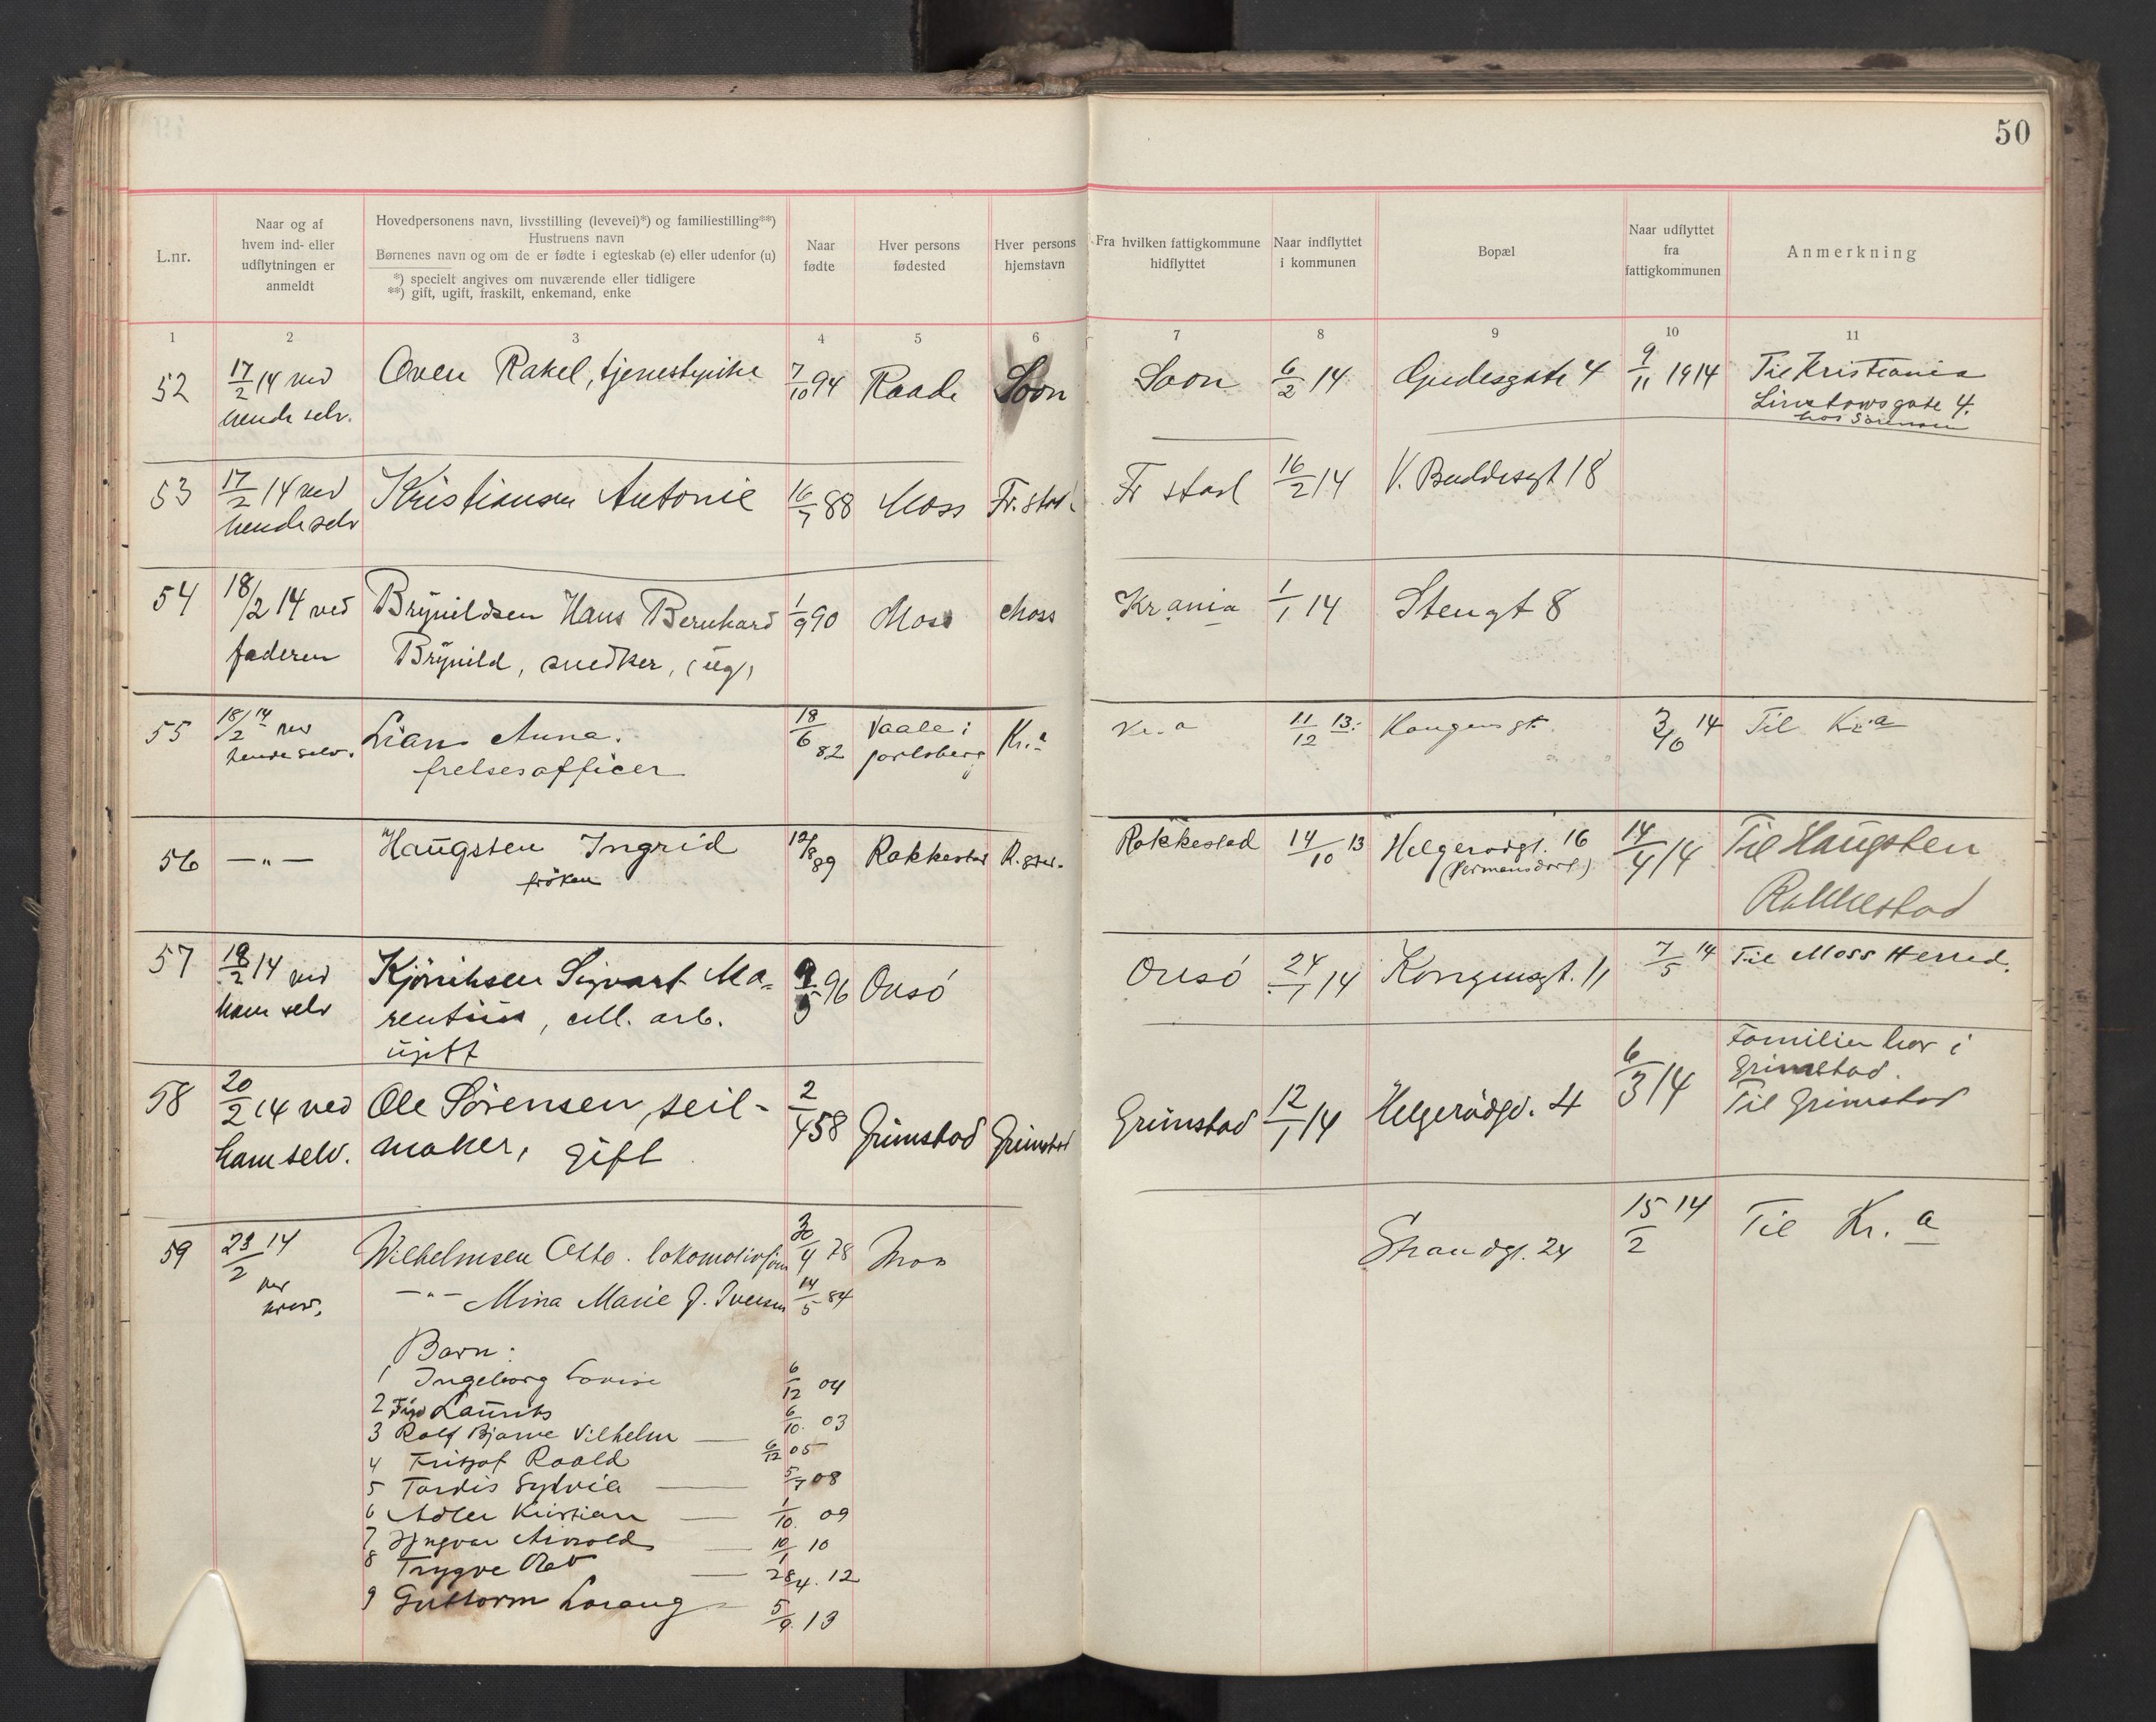 50
L.nr.
Naar og af
hvem ind- eller
udflytningen er
anmeldt
Hovedpersonens navn, livsstilling (levevei)*) og familiestilling**)
Hustruens navn
Børnenes navn og om de er fødte i egteskab (e) eller udenfor (u)
*) specielt angives om nuværende eller tidligere
**) gift, ugift, fraskilt, enkemand, enke
Naar
fødte
Hver persons
fødested
Hver persons
hjemstavn
Fra hvilken fattigkommune
hidflyttet
Naar indflyttet
i kommunen
Bopæl
Naar udflyttet
fra
fattigkommunen
Anmerkning
1 2 3 4 5 6 7 8 9 10 11
52 17/2 14 ved Oven Rakel, tjenestepike 7/10 94 Raade Soon Soon 6/2 14 Gudesgate 4 9/11 1914 Til Kristiania
hende selv. Linstowsgate 4.
hos Sörensen
53 17/2 14 ved Kristiansen Antonie 16/7 88 Moss Fr.stad Fr stad 16/2 14 V. Buddesgt 18
hende selv
54 18/2 14 ved Brynildsen Hans Bernhard 1/9 90 Moss Moss Kr ania 1/1 14 Stengt 8
faderen Brynild, snedker, (ug)
55 18/2 14 ved Lian Anna. 18/6 82 Vaale i Kr.a Kr.a 11/12 13. Kongensgt. 3/10 14 Til Kr.a
hende selv. frelsesofficer jarlsberg
56 — " — Haugsten Ingrid 12/8 89 Rakkestad R.stad. Rakkestad 14/10 13 Helgerødgt. 16 14/4 14 Til Haugsten
frøken (Hermansdorf) Rakkestad
57 18/2 14 ved Kjönihsen Sigvart Ma= 9/5 96 Onsö Onsö 24/1 14 Kongensgt. 11 7/5 14 Til Moss Herred.
ham selv rentius, cell. arb.
ugift
58 20/2 14 ved Ole Sörensen, seil- 2/4 58 Grimstad Grimstad Grimstad 12/1 14 Helgerödgd. 4 6/3 14 Familien bor i
Grimstad.
ham selv. maker, gift Til Grimstad
59 23/2 14 Wilhelmsen Otto. lokomotivför 30/4 78 Moss Strandgt. 24 15/2 14 Til Kr.a
ved
— " — Mina Marie f. Iversen 14/5 84
Barn:
1 Ingeborg Lovise 6/12 04
2 Laurits 6/10. 03
3 Rolf Bjarne Vilhelm — 6/12 05
4 Fritjof Roald
5 Tordis Sylvia — 5/7 08
6 Adler Kristian — 1/10. 09
7 Yngvar Arnold — 10/1 10
8 Trygve Olav — 28/4. 12
9 Guttorm Lorang — 5/9. 13